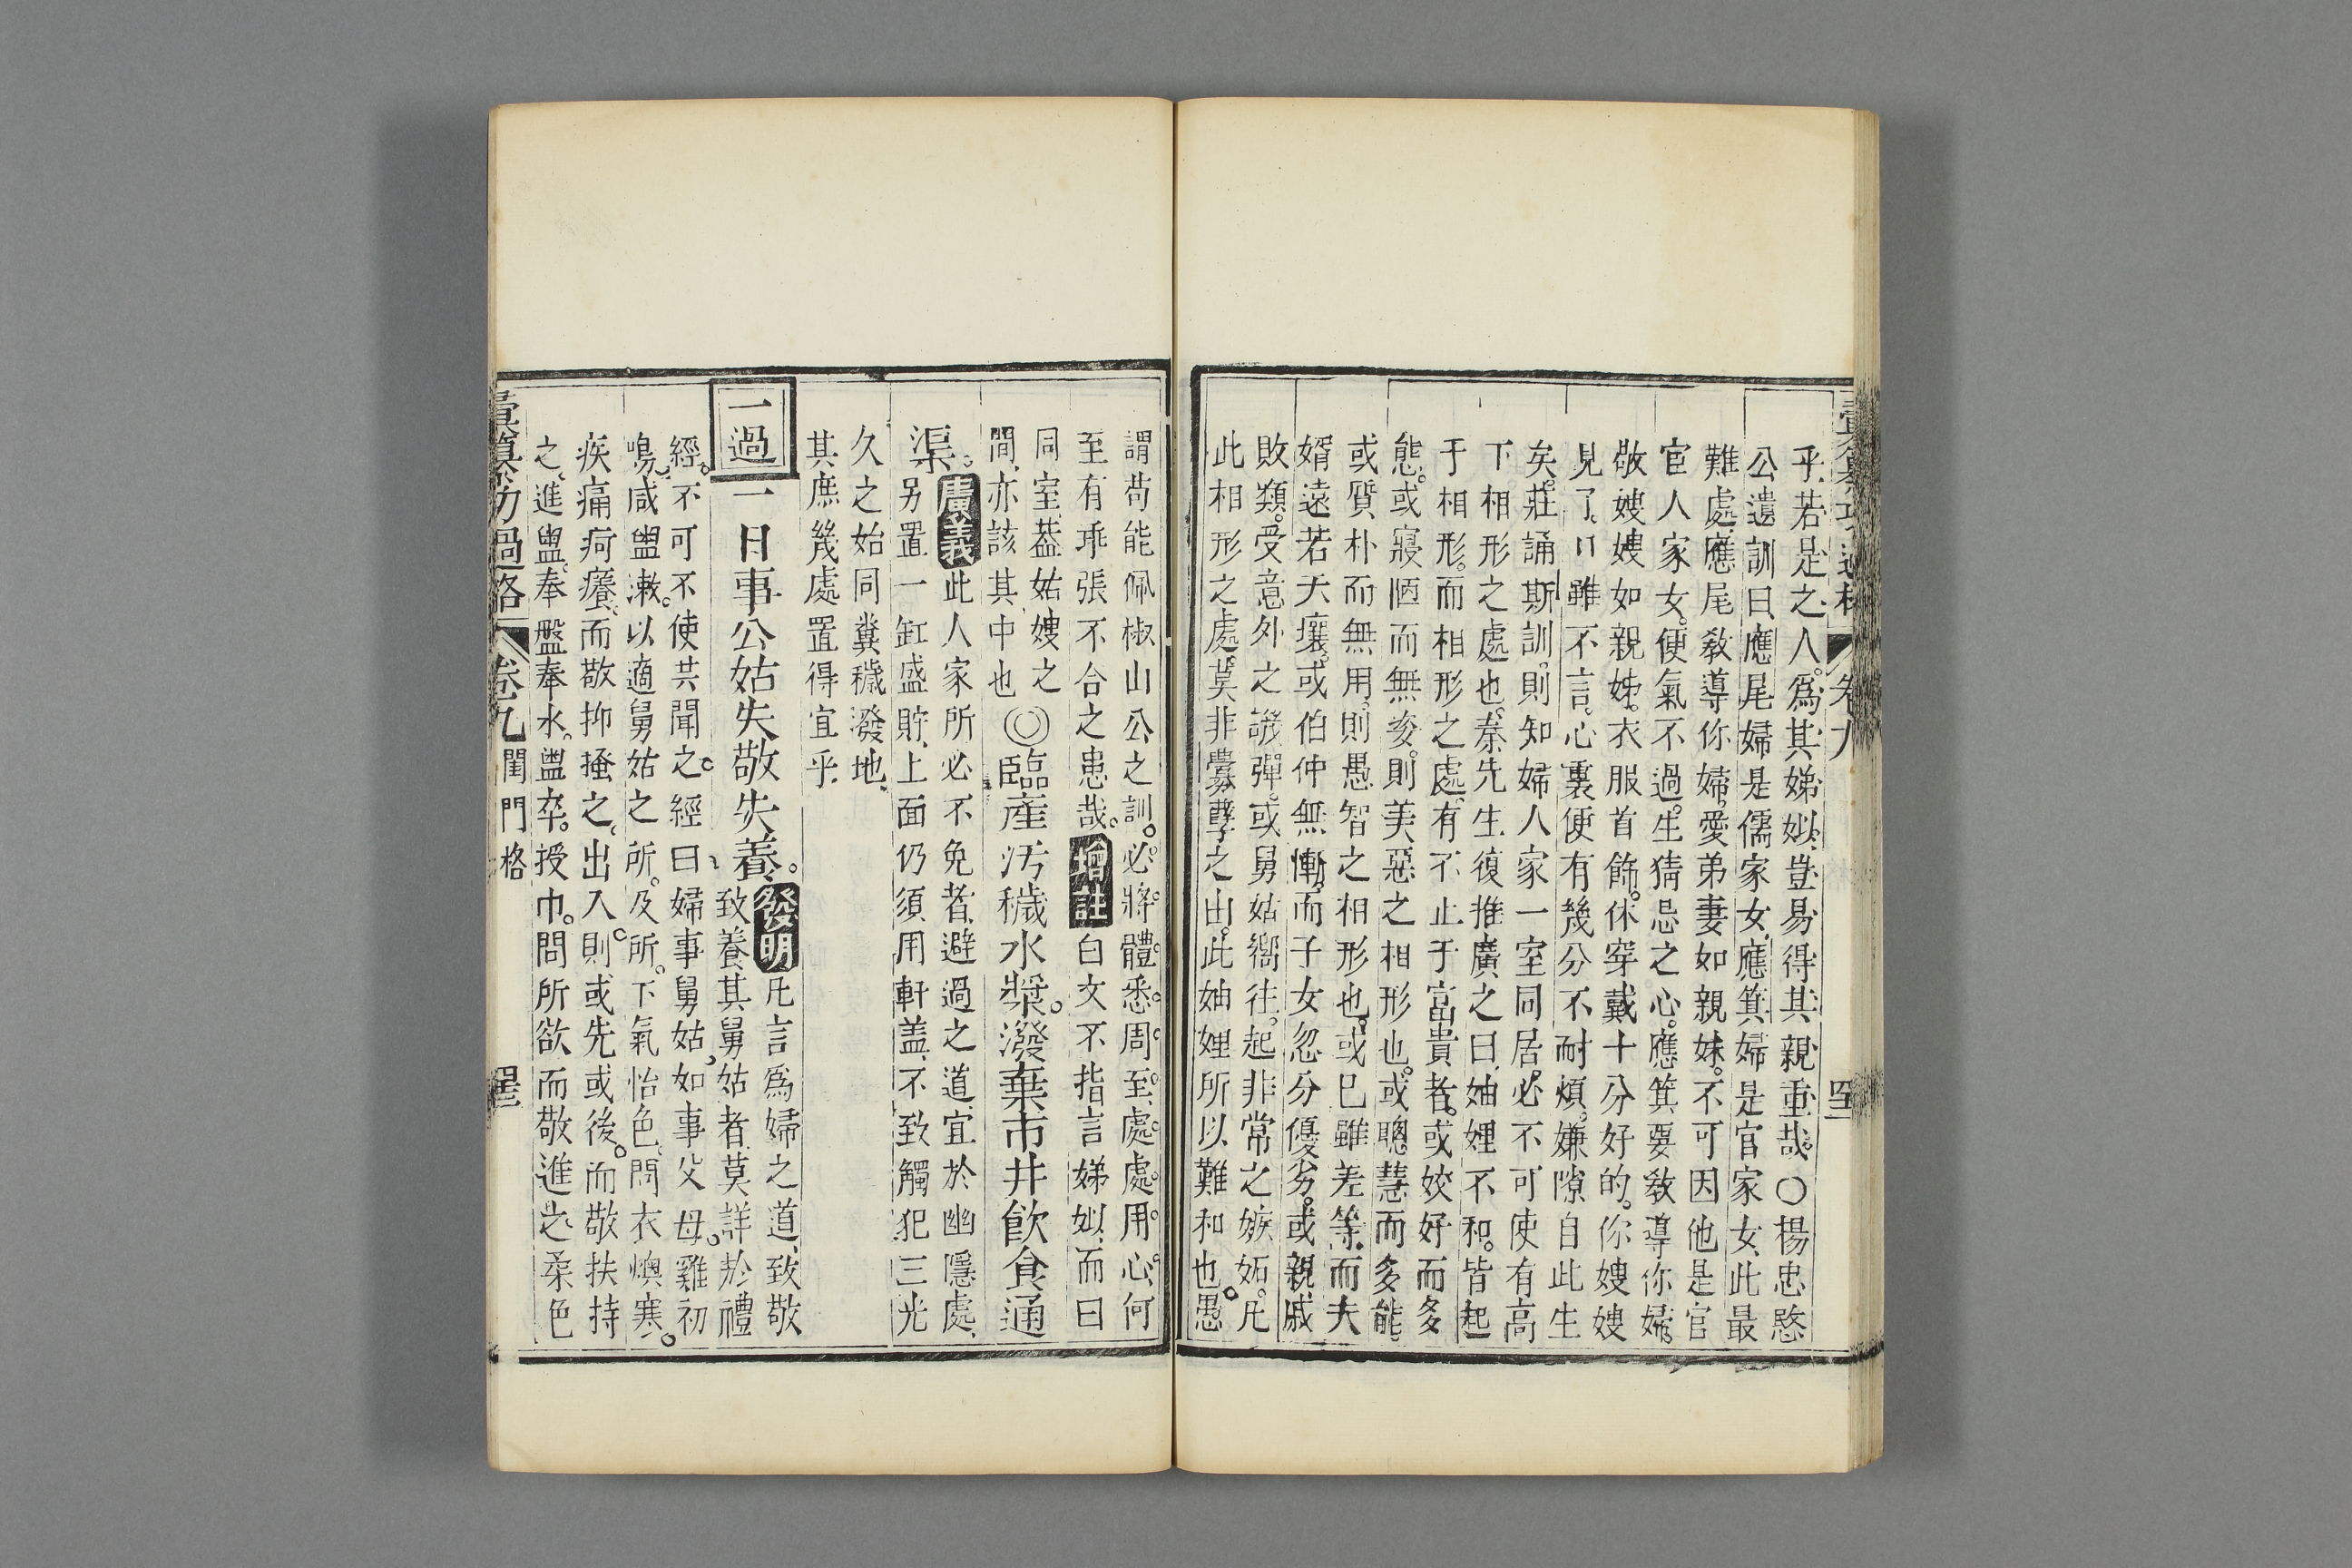 乎若是之人。爲其娣姒。豈易得其親重哉。○楊忠愍
公遺訓曰應尾婦是儒家女應箕婦是官家女此最
難處應尾敎導你婦愛弟妻如親妹。不可因他是官
官人家女。便氣不過。生猜忌之心。應箕要敎導你婦。
敬嫂嫂如親姊。衣服首飾。休穿戴十分好的。你嫂嫂
見了。口雖不言。心裏便有幾分不耐煩。嫌隙自此生
矣。莊誦斯訓。則知婦人家一室同居。必不可使有高
下相形之處也。秦先生復推廣之曰妯娌不和。皆起
于相形。而相形之處。有不止于富貴者。或姣好而多
態。或寢陋而無姿。則美惡之相形也。或聰慧而多能。
或質朴而無用。則愚智之相形也。或巳雖差等。而夫
婿遠若天壤。或伯仲無慚。而子女忽分優劣。或親戚
敗類。受意外之譏彈。或舅姑嚮往。起非常之嫉妬。凡
此相形之處。莫非釁孽之由。此妯娌所以難和也。愚
謂苟能佩椒山公之訓。必將體悉周至。處處用心。何
至有乖張不合之患哉。增註白文不指言娣姒。而曰
同室。葢姑嫂之
間。亦該其中也◎臨產汚穢水漿。潑棄市井飮食通
渠。廣義此人家所必不免者。避過之道。宜於幽隱處。
另置一缸盛貯。上面仍須用軒盖。不致觸犯三光
久之始同糞穢潑地。
其庶幾處置得宜乎
一過
一日事公姑失敬失養。發明凡言爲婦之道。致敬
致養其舅姑者。莫詳於禮
經。不可不使共聞之。經曰婦事舅姑。如事父母。雞初
鳴。咸盥漱。以適舅姑之所。及所。下氣怡色。問衣燠寒。
疾痛疴癢。而敬抑搔之。出入。則或先或後。而敬扶持
之。進盥。奉盤奉水。盥卒。授巾。問所欲而敬進之。柔色
彙纂功過格 卷九 閨門格